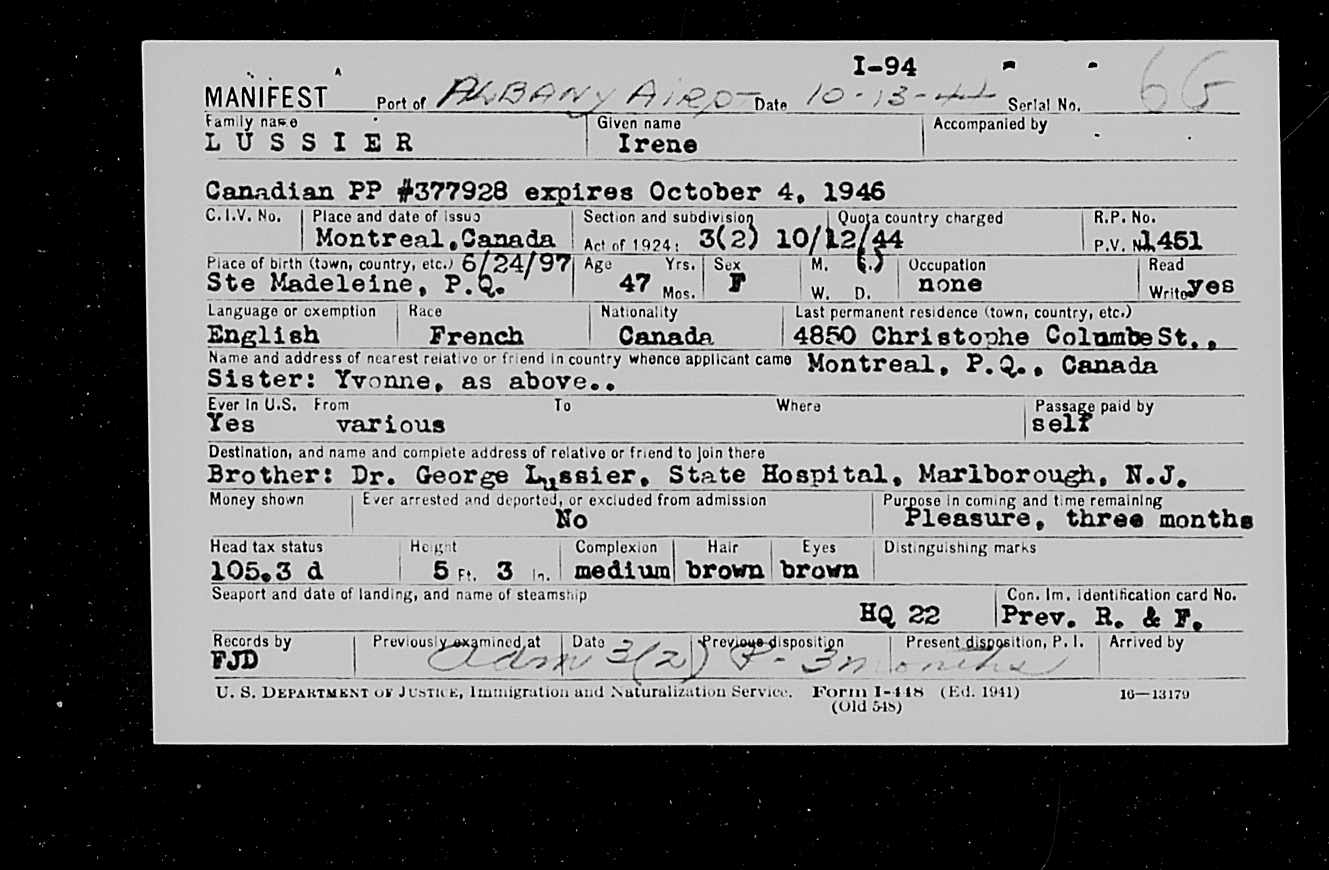 I-94
MANIFEST Port of ALBANY AIRP Date 10-13-44 Serial No. 6G
Family name Given name Accompanied by
LUSSIER Irene
Canadian PP #377928 expires October 4, 1946
C.I.V. No. Place and date of issue Section and subdivision Quota country charged R.P. No.
Montreal, Canada Act of 1924: 3(2) 10/12/44 P.V. No. 1451
Place of birth (town, country, etc.) 6/24/97 Age Yrs. Sex M. (S.) Occupation Read
Ste Madeleine, P.Q. 47 Mos. F W. D. none Write yes
Language or exemption Race Nationality Last permanent residence (town, country, etc.)
English French Canada 4850 Christophe Columbe St.,
Name and address of nearest relative or friend in country whence applicant came Montreal, P.Q., Canada
Sister: Yvonne, as above..
Ever in U.S. From To Where Passage paid by
Yes various self
Destination, and name and complete address of relative or friend to join there
Brother: Dr. George Lussier, State Hospital, Marlborough, N.J.
Money shown Ever arrested and deported, or excluded from admission Purpose in coming and time remaining
No Pleasure, three months
Head tax status Height Complexion Hair Eyes Distinguishing marks
105.3 d 5 Ft. 3 In. medium brown brown
Seaport and date of landing, and name of steamship Con. Im. identification card No.
HQ 22 Prev. R. & F.
Records by Previously examined at Date Previous disposition Present disposition, P. I. Arrived by
FJD adm 3(2) P - 3 months
U. S. DEPARTMENT OF JUSTICE, Immigration and Naturalization Service. Form I-448 (Ed. 1941) 16—13179
(Old 548)